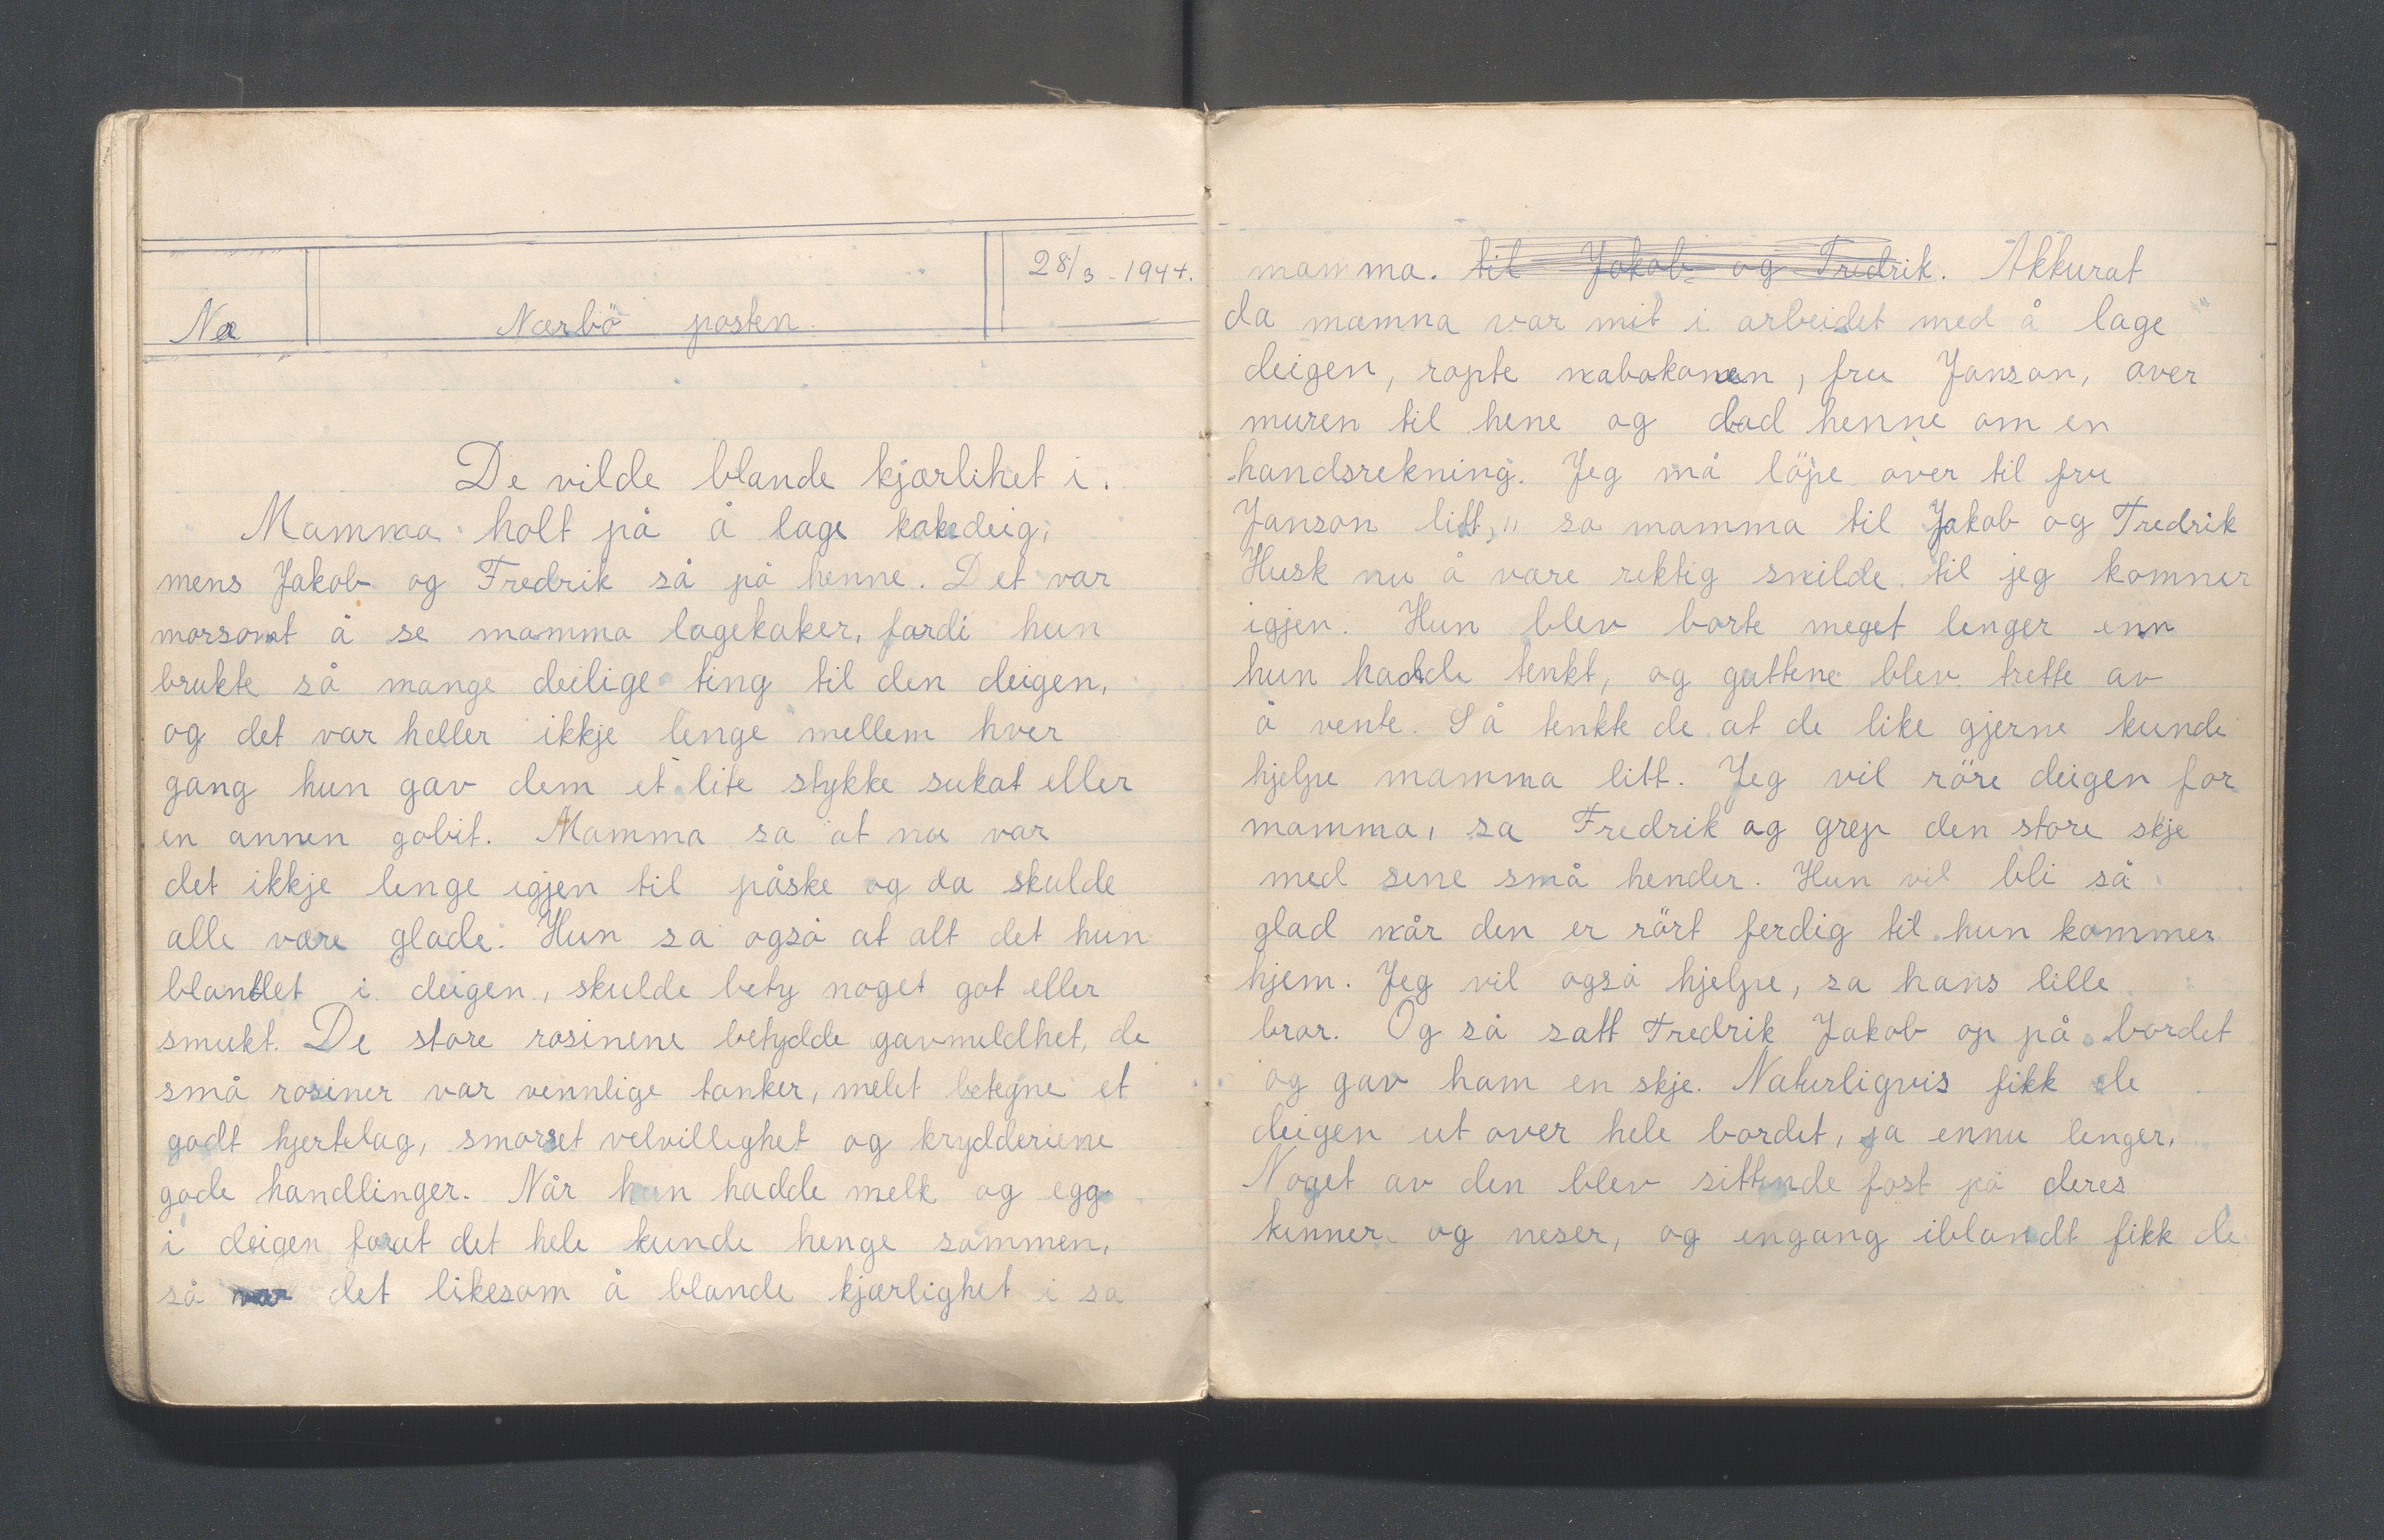 Nærbö posten
28/3 - 1944.
De vilde blande kjærlihet i.
Mamma holt på å lage kakedeig,
mens Jakob og Fredrik så på henne. Det var
morsomt å se mamma lagekaker, fordi hun
brukte så mange deilige ting til den deigen,
og det var heller ikkje lenge mellem hver
gang hun gav dem et lite stykke sukat eller
en annen gobit. Mamma sa at nu var
det ikkje lenge igjen til påske og da skulde
alle være glade. Hun sa også at alt det hun
blandet i deigen, skulde bety noget got eller
smukt. De store rosinene betydde gavmeldhet, de
små rosiner var vennlige tanker, melet betegne et
godt hjertelag, smørset velvillighet og krydderiene
gode handlinger. Når hun hadde melk og egg
i deigen forat det hele kunde henge sammen,
så var det likesom å blande kjærlighet i sa
mamma. til Jakob og Fredrik. Akkurat
da mamma var mit i arbeidet med å lage
deigen, ropte nabokonen, fru Janson, over
muren til hene og bad henne om en
handsrekning. Jeg må löpe over til fru
Janson litt," sa mamma til Jakob og Fredrik
Husk nu å være rektig snilde til jeg kommer
igjen. Hun blev borte meget lenger enn
hun hadde tenkt, og guttene blev trette av
å vente. Så tenkte de at de like gjerne kunde
hjelpe mamma litt. Jeg vil röre deigen for
mamma, sa Fredrik og grep den store skje
med sene små hender. Hun vil bli så
glad når den er rört ferdig til hun kommer
hjem. Jeg vil også hjelpe, sa hans lille
bror. Og så satt Fredrik Jakob op på bordet
og gav ham en skje. Naturligvis fikk de
deigen ut over hele bordet, ja ennu lenger.
Noget av den blev sittende fast på deres
kinner og neser, og engang iblandt fikk de